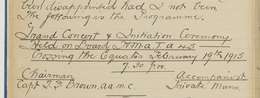 been disappointed had I not been
The following is the Programme.
Grand Concert & Initiation Ceremony
Held on board H.M.A.T.
Crossing the Equator February 19th 1915
7.30 p.m.
Chairman Accompanist
Capt T.F. Brown, a.a.m.c. Private Mann